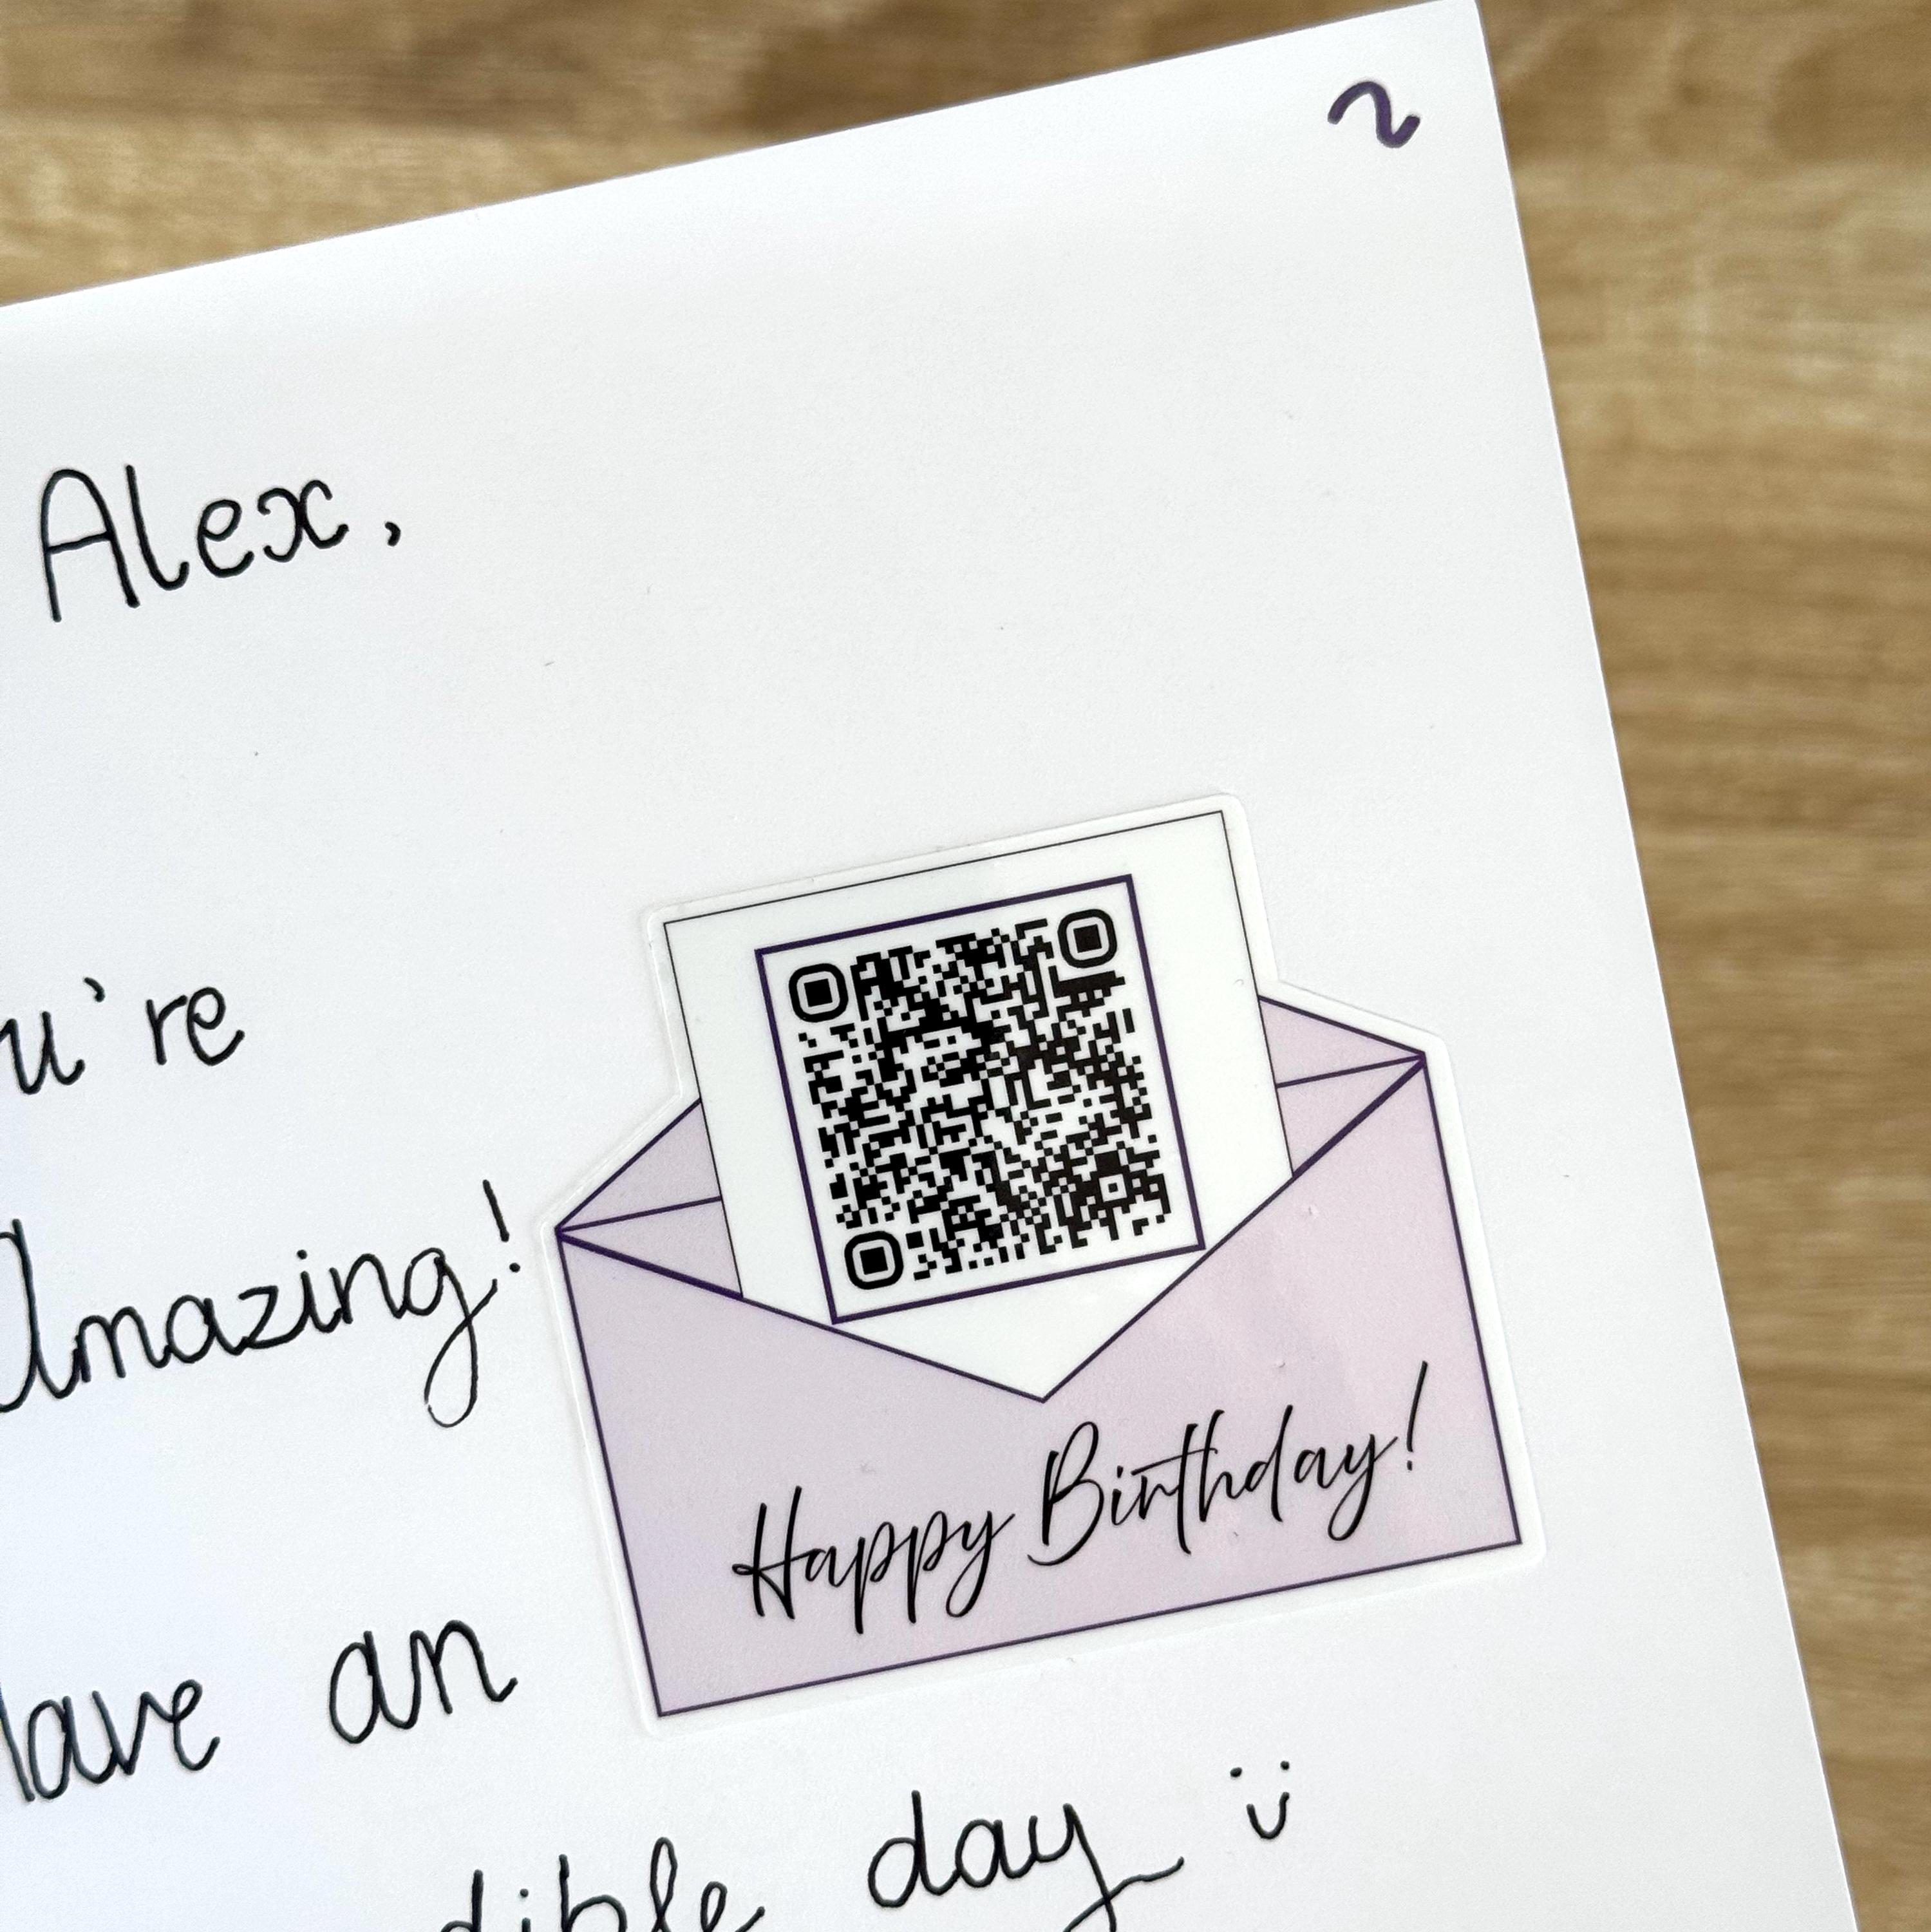 2
Alex,
u're
Amazing!
Have an
dible day ü
Happy Birthday!